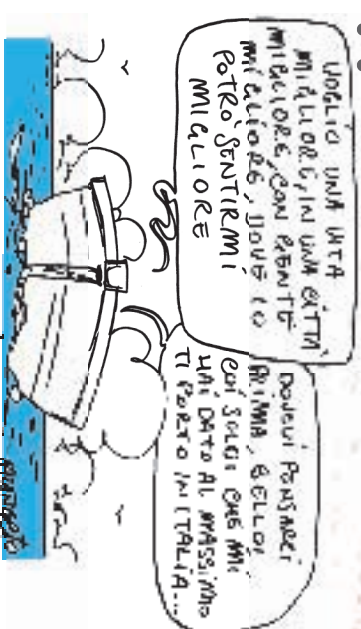 VOGLIO UNA VITA
MIGLIORE, IN UNA CITTA'
MIGLIORE, CON GENTE
MIGLIORE, DOVE IO
POTRO' SENTIRMI
MIGLIORE
DOVEVI PENSARCI
PRIMA, BELLO!
COI SOLDI CHE MI
HAI DATO AL MASSIMO
TI PORTO IN ITALIA...